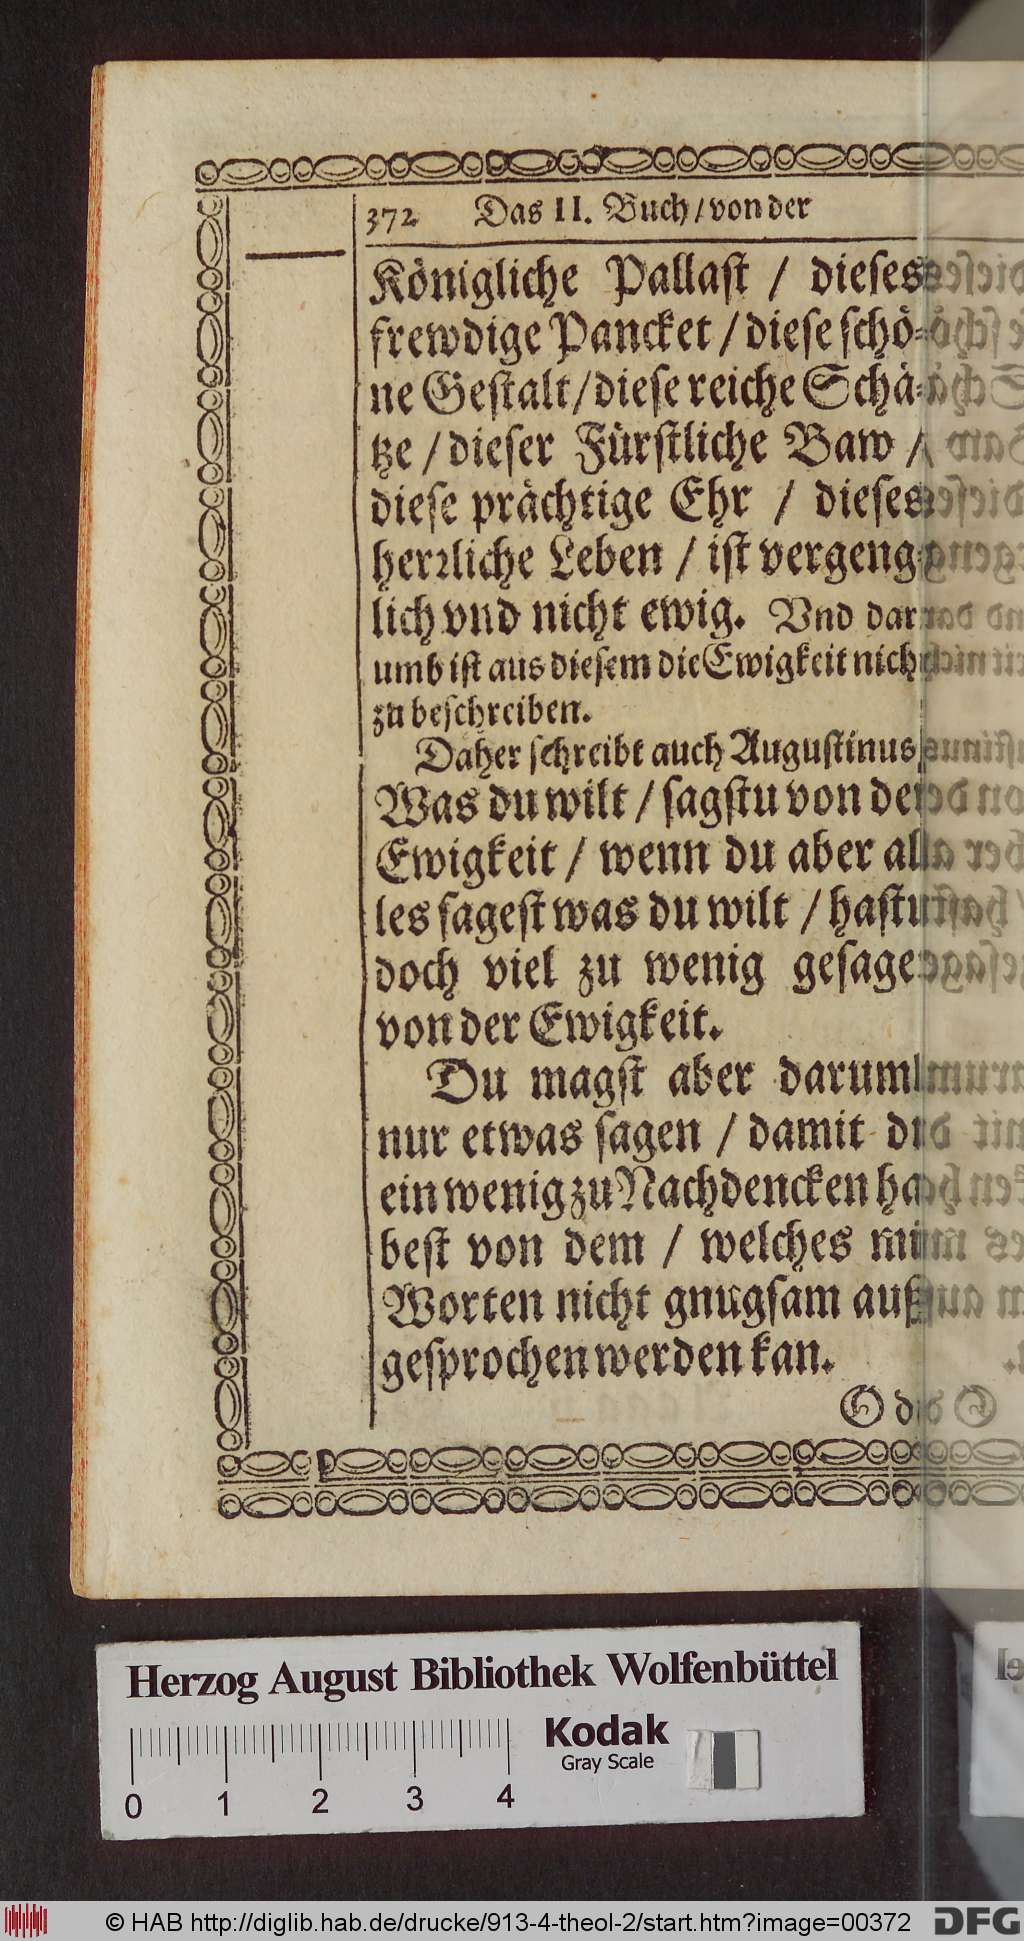 372 Das II. Buch / von der
Königliche Pallaſt / dieſes
frewdige Pancket / dieſe ſchö⸗
ne Geſtalt / dieſe reiche Schä⸗
tze / dieſer Fürſtliche Baw /
dieſe prächtige Ehr / dieſes
herꝛliche Leben / iſt vergeng⸗
lich vnd nicht ewig. Vnd dar
umb iſt aus dieſem die Ewigkeit nicht
zu beſchreiben.
Daher ſchreibt auch Auguſtinus
Was du wilt / ſagſtu von der
Ewigkeit / wenn du aber al
les ſageſt was du wilt / haſtu
doch viel zu wenig geſaget
von der Ewigkeit.
Du magſt aber darumb
nur etwas ſagen / damit du
ein wenig zu Nachdencken ha
beſt von dem / welches mit
Worten nicht gnugſam auß
geſprochen werden kan.
O du
Herzog August Bibliothek Wolfenbüttel
Kodak
Gray Scale
0 1 2 3 4
© HAB http://diglib.hab.de/drucke/913-4-theol-2/start.htm?image=00372
DFG